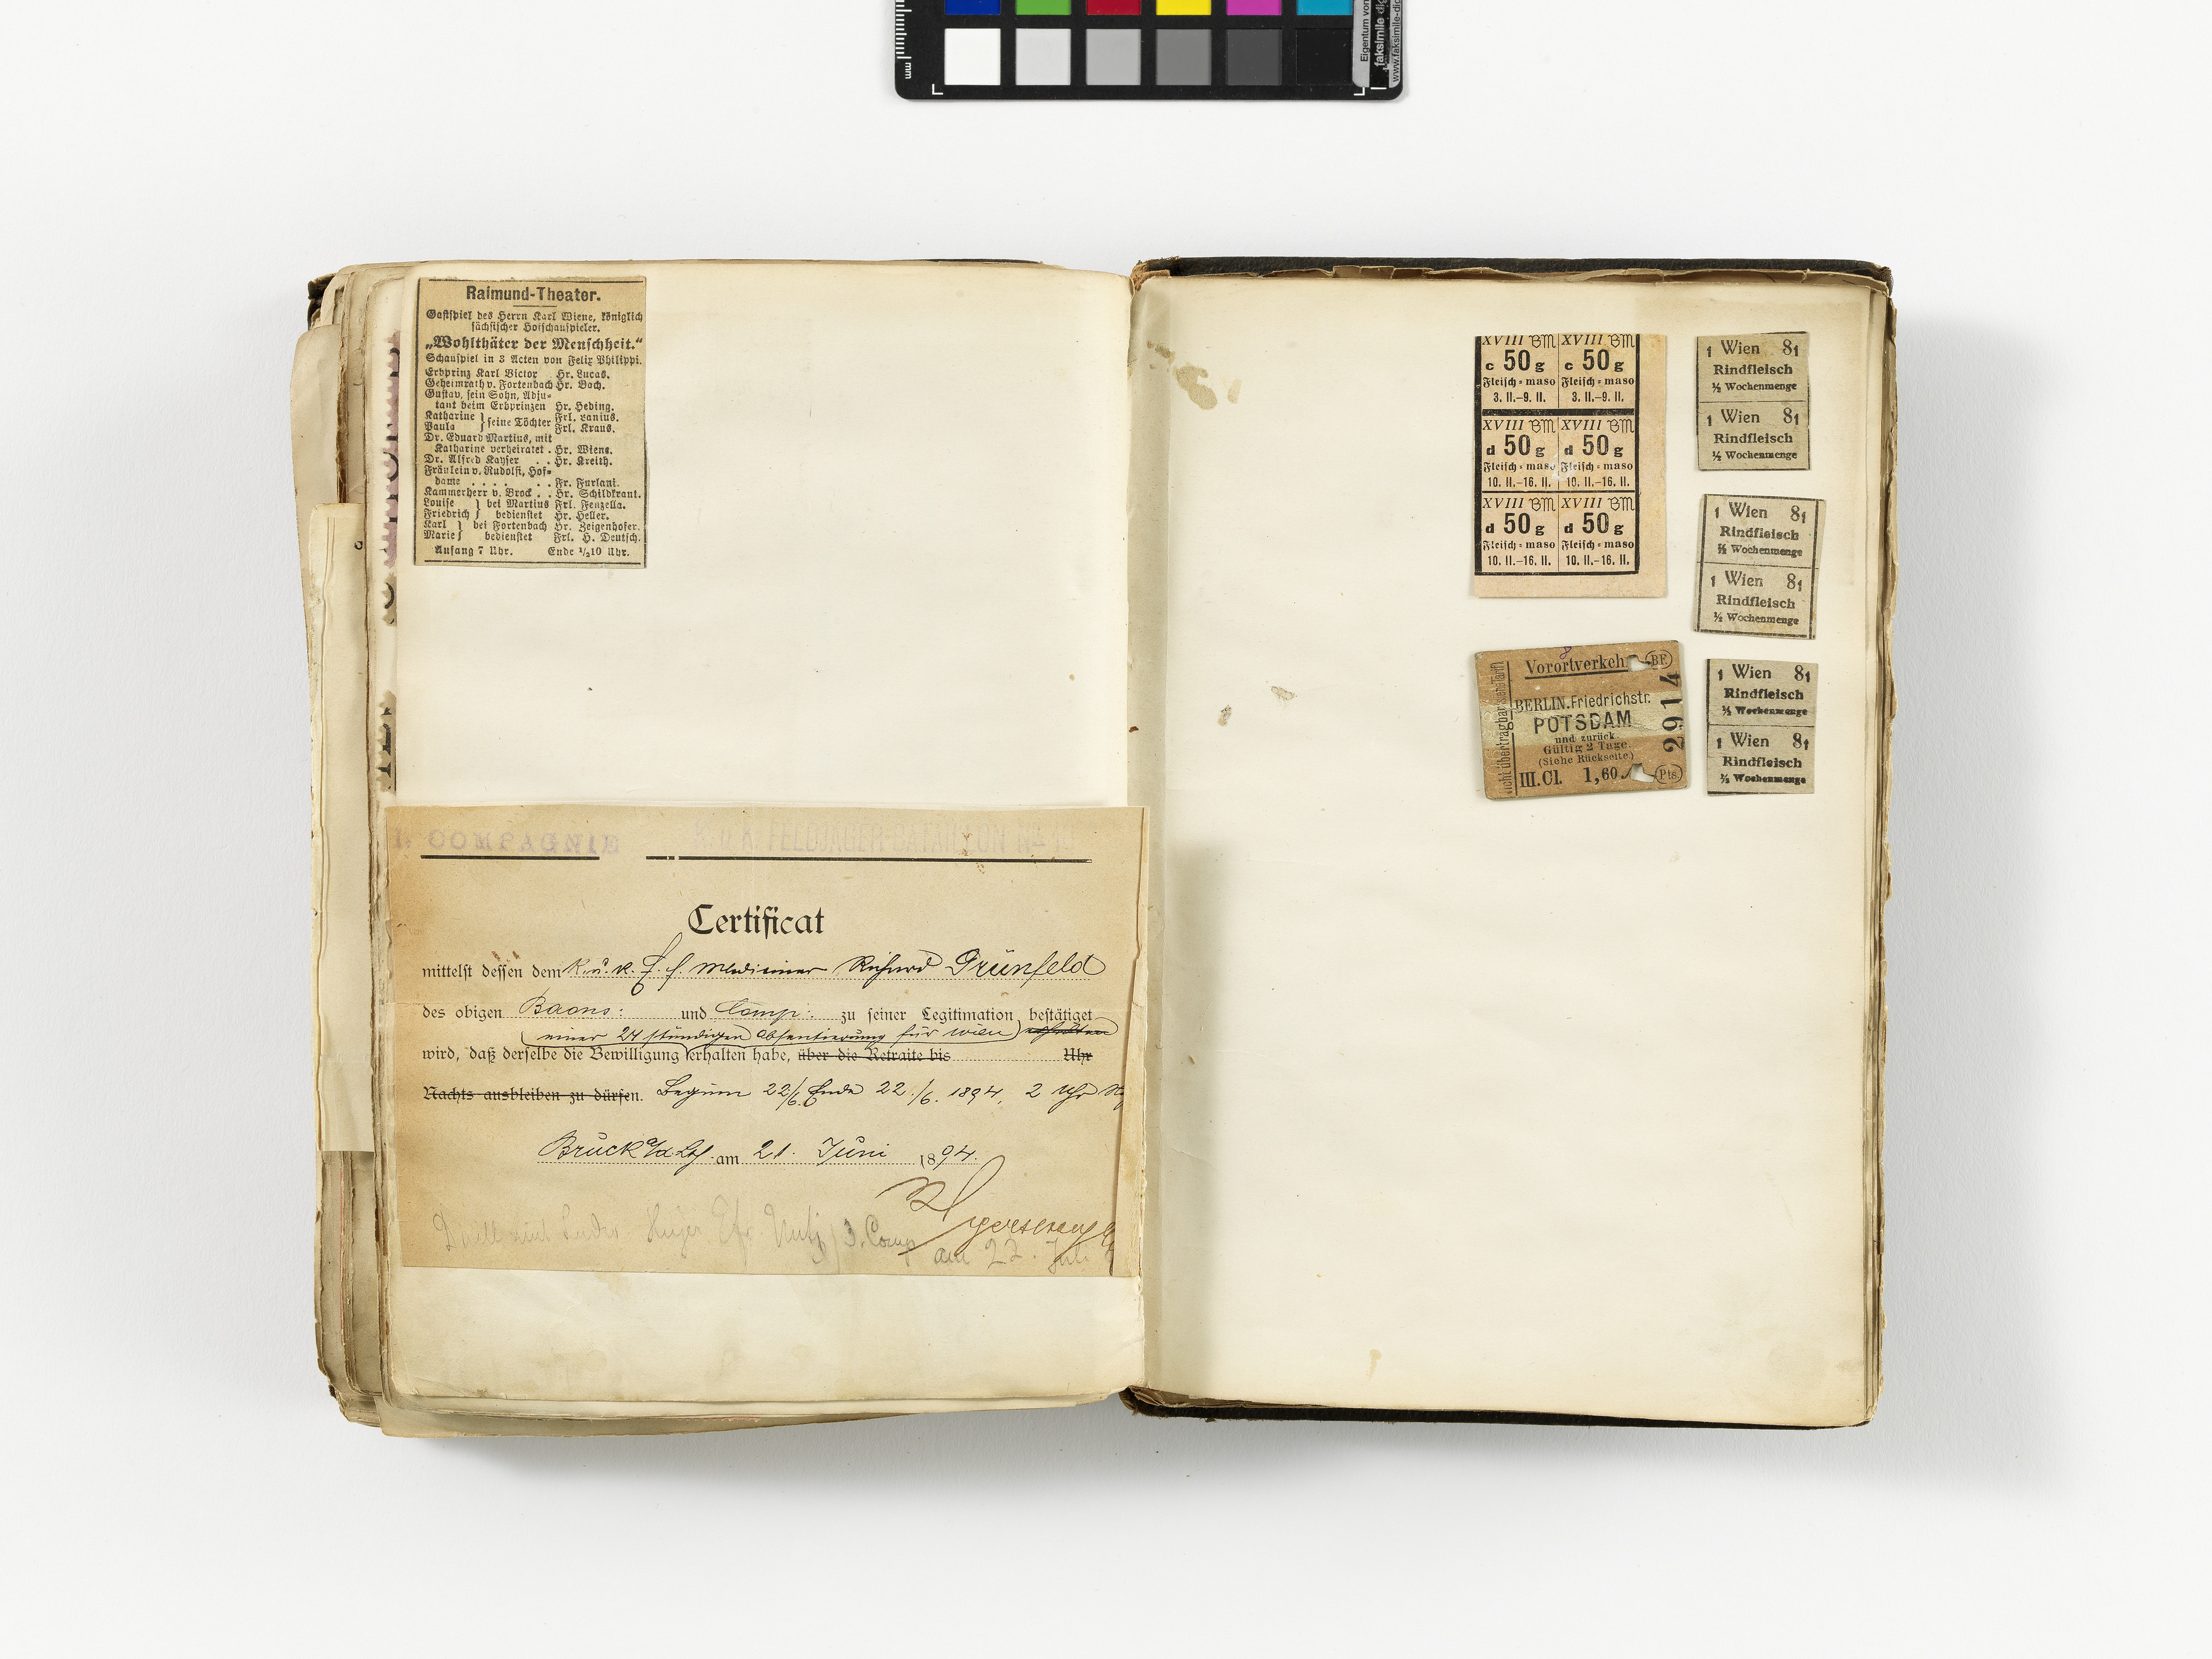 mm
Eigentum von
faksimile dig
www.faksimile-dig
Raimund-Theater.
Gastspiel des Herrn Karl Wiene, königlich
sächsischer Hofschauspieler.
„Wohlthäter der Menschheit.“
Schauspiel in 3 Acten von Felix Philippi.
Erbprinz Karl Victor Hr. Lucas.
Geheimrath v. Fortenbach Hr. Bach.
Gustav, sein Sohn, Adju-
tant beim Erbprinzen Hr. Heding.
Katharine } seine Töchter Frl. Lanius.
Paula } Frl. Kraus.
Dr. Eduard Martius, mit
Katharine verheiratet . Hr. Wiene.
Dr. Alfred Kayser . . Hr. Kreith.
Fräulein v. Rudolfi, Hof-
dame . . . . . . Fr. Furlani.
Kammerherr v. Brock . . Hr. Schildkraut.
Louise } bei Martius Frl. Fenzella.
Friedrich } bedienstet Hr. Heller.
Karl } bei Fortenbach Hr. Zeigenhofer.
Marie } bedienstet Frl. H. Deutsch.
Anfang 7 Uhr. Ende ½10 Uhr.
1. COMPAGNIE K. u. K. FELDJÄGER-BATAILLON No 10
Certificat
mittelst dessen dem K. u. K. Mediciner Richard Grünfeld
des obigen Baons: und Comp: zu seiner Legitimation bestätiget
einer 24 stündigen Absentierung für Wien
wird, daß derselbe die Bewilligung erhalten habe, über die Retraite bis Uhr
Nachts ausbleiben zu dürfen. Beginn 22/6 Ende 22./6. 1894, 2 Uhr
Bruck a/d Lth. am 21. Juni 1894.
Duell mit 3. Comp
am 22. Juli
XVIII BM XVIII BM
c 50 g c 50 g
Fleisch-maso Fleisch-maso
3. II.–9. II. 3. II.–9. II.
XVIII BM XVIII BM
d 50 g d 50 g
Fleisch-maso Fleisch-maso
10. II.–16. II. 10. II.–16. II.
XVIII BM XVIII BM
d 50 g d 50 g
Fleisch-maso Fleisch-maso
10. II.–16. II. 10. II.–16. II.
1 Wien 81
Rindfleisch
½ Wochenmenge
1 Wien 81
Rindfleisch
½ Wochenmenge
1 Wien 81
Rindfleisch
½ Wochenmenge
1 Wien 81
Rindfleisch
½ Wochenmenge
1 Wien 81
Rindfleisch
½ Wochenmenge
1 Wien 81
Rindfleisch
½ Wochenmenge
8
Vorortverkehr BF
BERLIN.Friedrichstr.
POTSDAM
und zurück.
Gültig 2 Tage.
(Siehe Rückseite)
III.Cl. 1,60 Pts.
2914